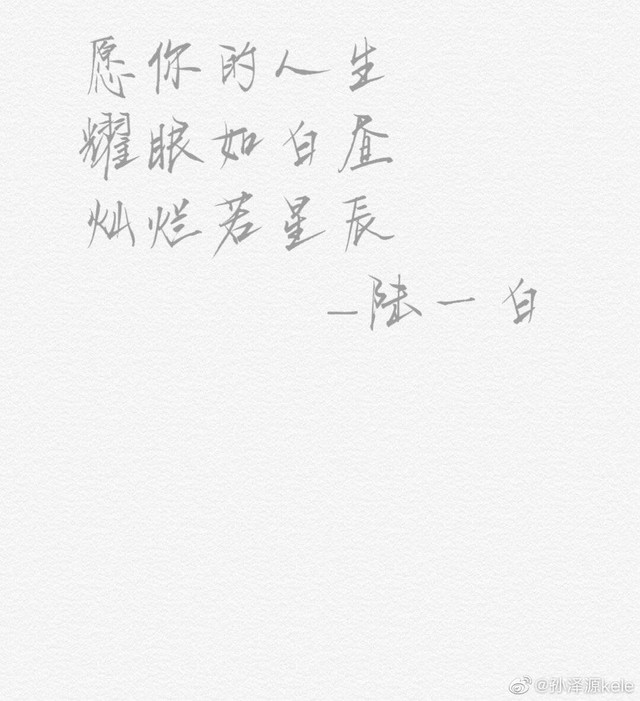 愿你的人生
耀眼如白昼
灿烂若星辰
—陆一白
@孙泽源kele